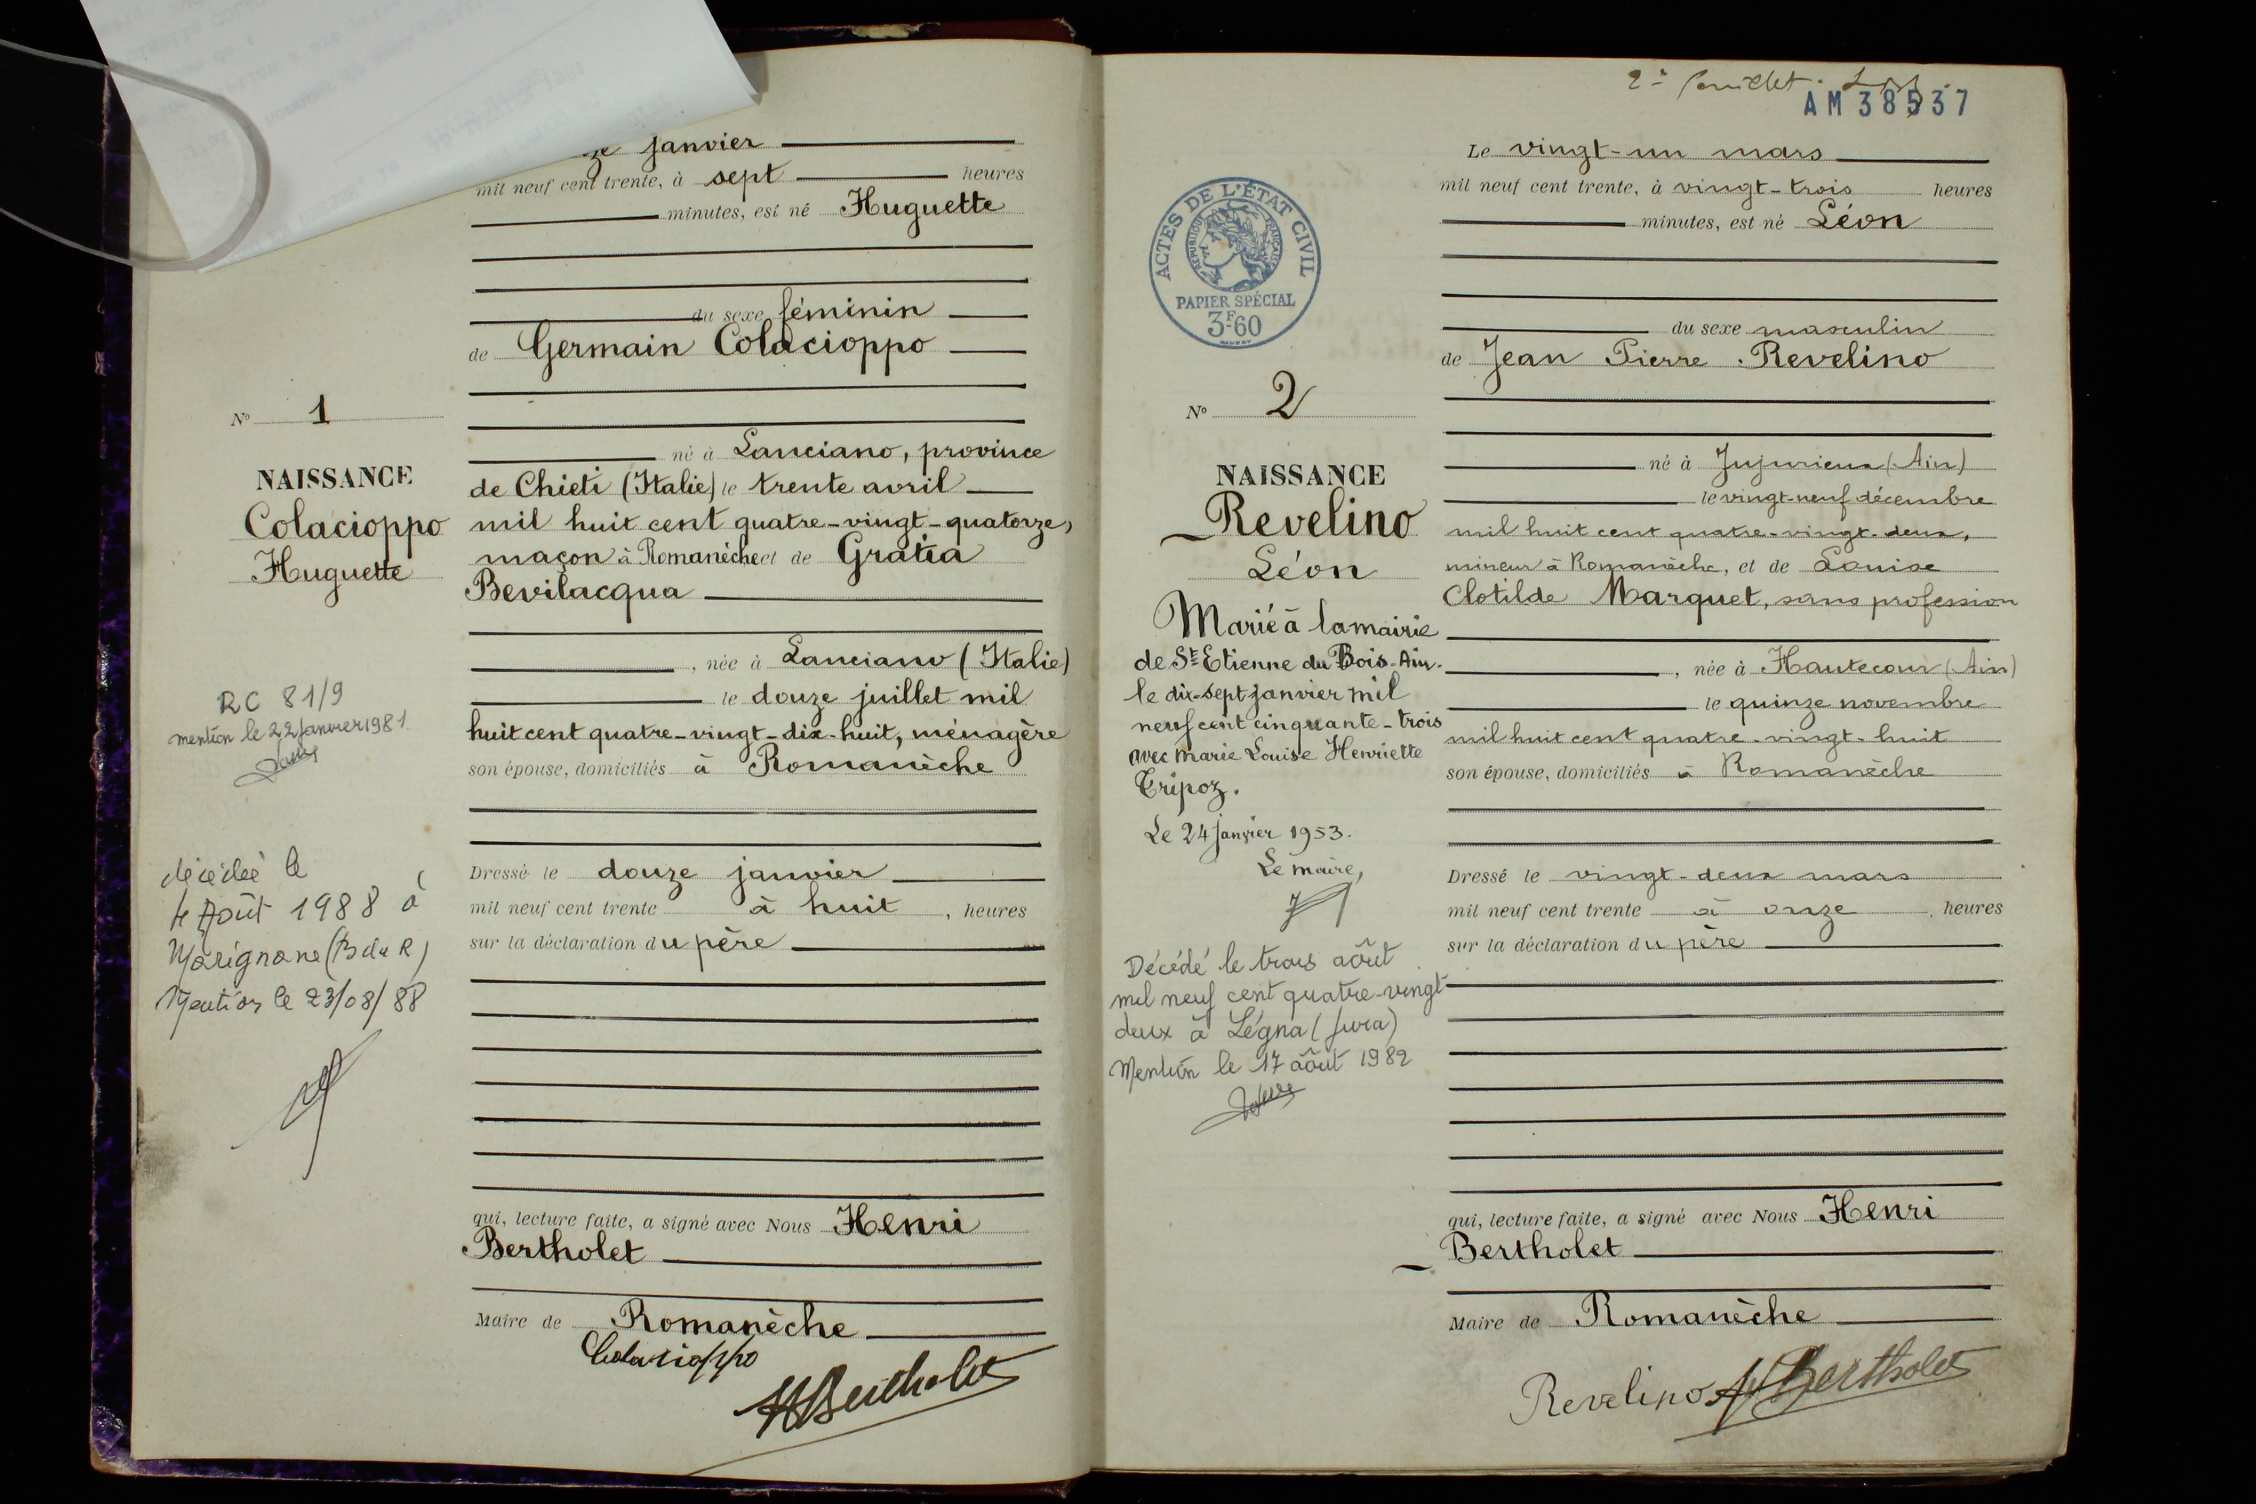 janvier
mil neuf cent trente, à sept heures
minutes, est né Huguette
du sexe féminin
de Germain Colacioppo
né à Lanciano, province
de Chieti (Italie) le trente avril
mil huit cent quatre-vingt-quatorze,
maçon à Romanèche et de Gratia
Bevilacqua
, née à Lanciano (Italie)
le douze juillet mil
huit cent quatre-vingt-dix-huit, ménagère
son épouse, domiciliés à Romanèche
Dressé le douze janvier
mil neuf cent trente à huit, heures
sur la déclaration du père
qui, lecture faite, a signé avec Nous Henri
Bertholet
Maire de Romanèche
Colacioppo
HBertholet
N° 1
NAISSANCE
Colacioppo
Huguette
RC 81/9
mention le 22 janvier 1981
décédée le
4 Août 1988 à
Marignane (B du R)
Mention le 23/08/88
2e feuillet
AM 38537
ACTES DE L'ÉTAT CIVIL
RÉPUBLIQUE FRANÇAISE
PAPIER SPÉCIAL
3F.60
N° 2
NAISSANCE
Revelino
Léon
Marié à la mairie
de St Etienne du Bois-Ain.
le dix-sept janvier mil
neuf cent cinquante-trois
avec Marie Louise Henriette
Tripoz.
Le 24 janvier 1953.
Le maire,
Décédé le trois août
mil neuf cent quatre-vingt
deux à Légna (Jura)
Mention le 17 août 1982
Le vingt-un mars
mil neuf cent trente, à vingt-trois heures
minutes, est né Léon
du sexe masculin
de Jean Pierre Revelino
né à Jujurieux (Ain)
le vingt-neuf décembre
mil huit cent quatre-vingt-deux,
mineur à Romanèche, et de Louise
Clotilde Marquet, sans profession
, née à Hautecour (Ain)
le quinze novembre
mil huit cent quatre-vingt-huit
son épouse, domiciliés à Romanèche
Dressé le vingt-deux mars
mil neuf cent trente à onze, heures
sur la déclaration du père
qui, lecture faite, a signé avec Nous Henri
Bertholet
Maire de Romanèche
Revelino HBertholet